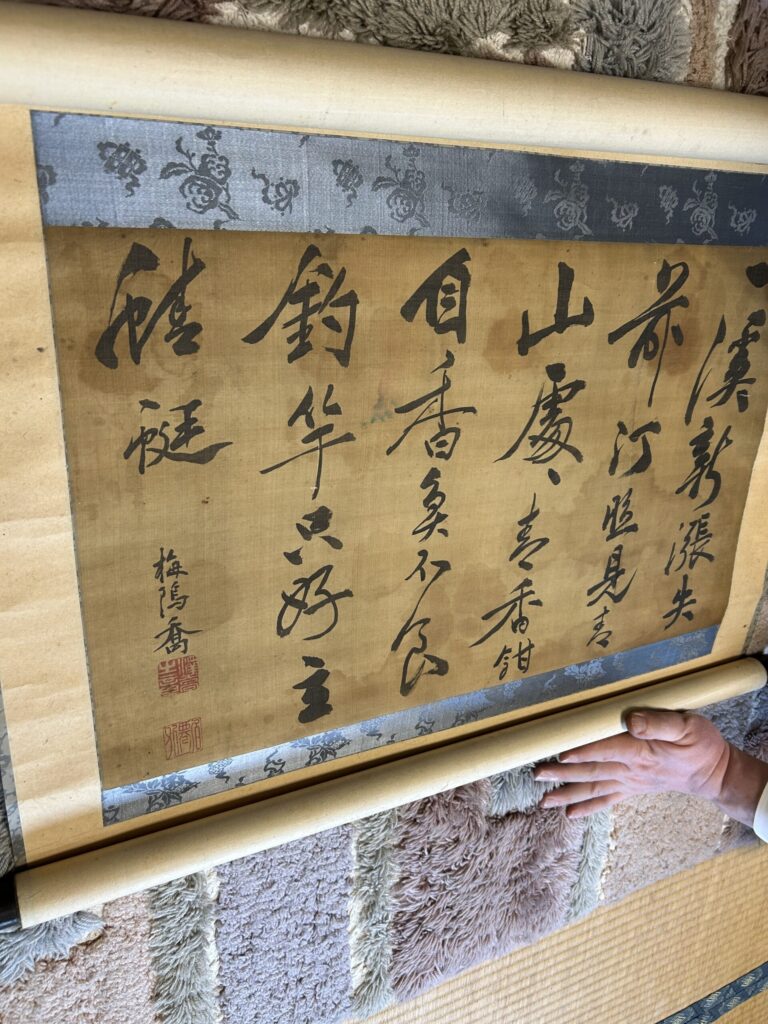 一溪新漲失
前汀照見青
山處〻青香餌
自香魚不食
釣竿只好立
蜻蜓
梅隝喬